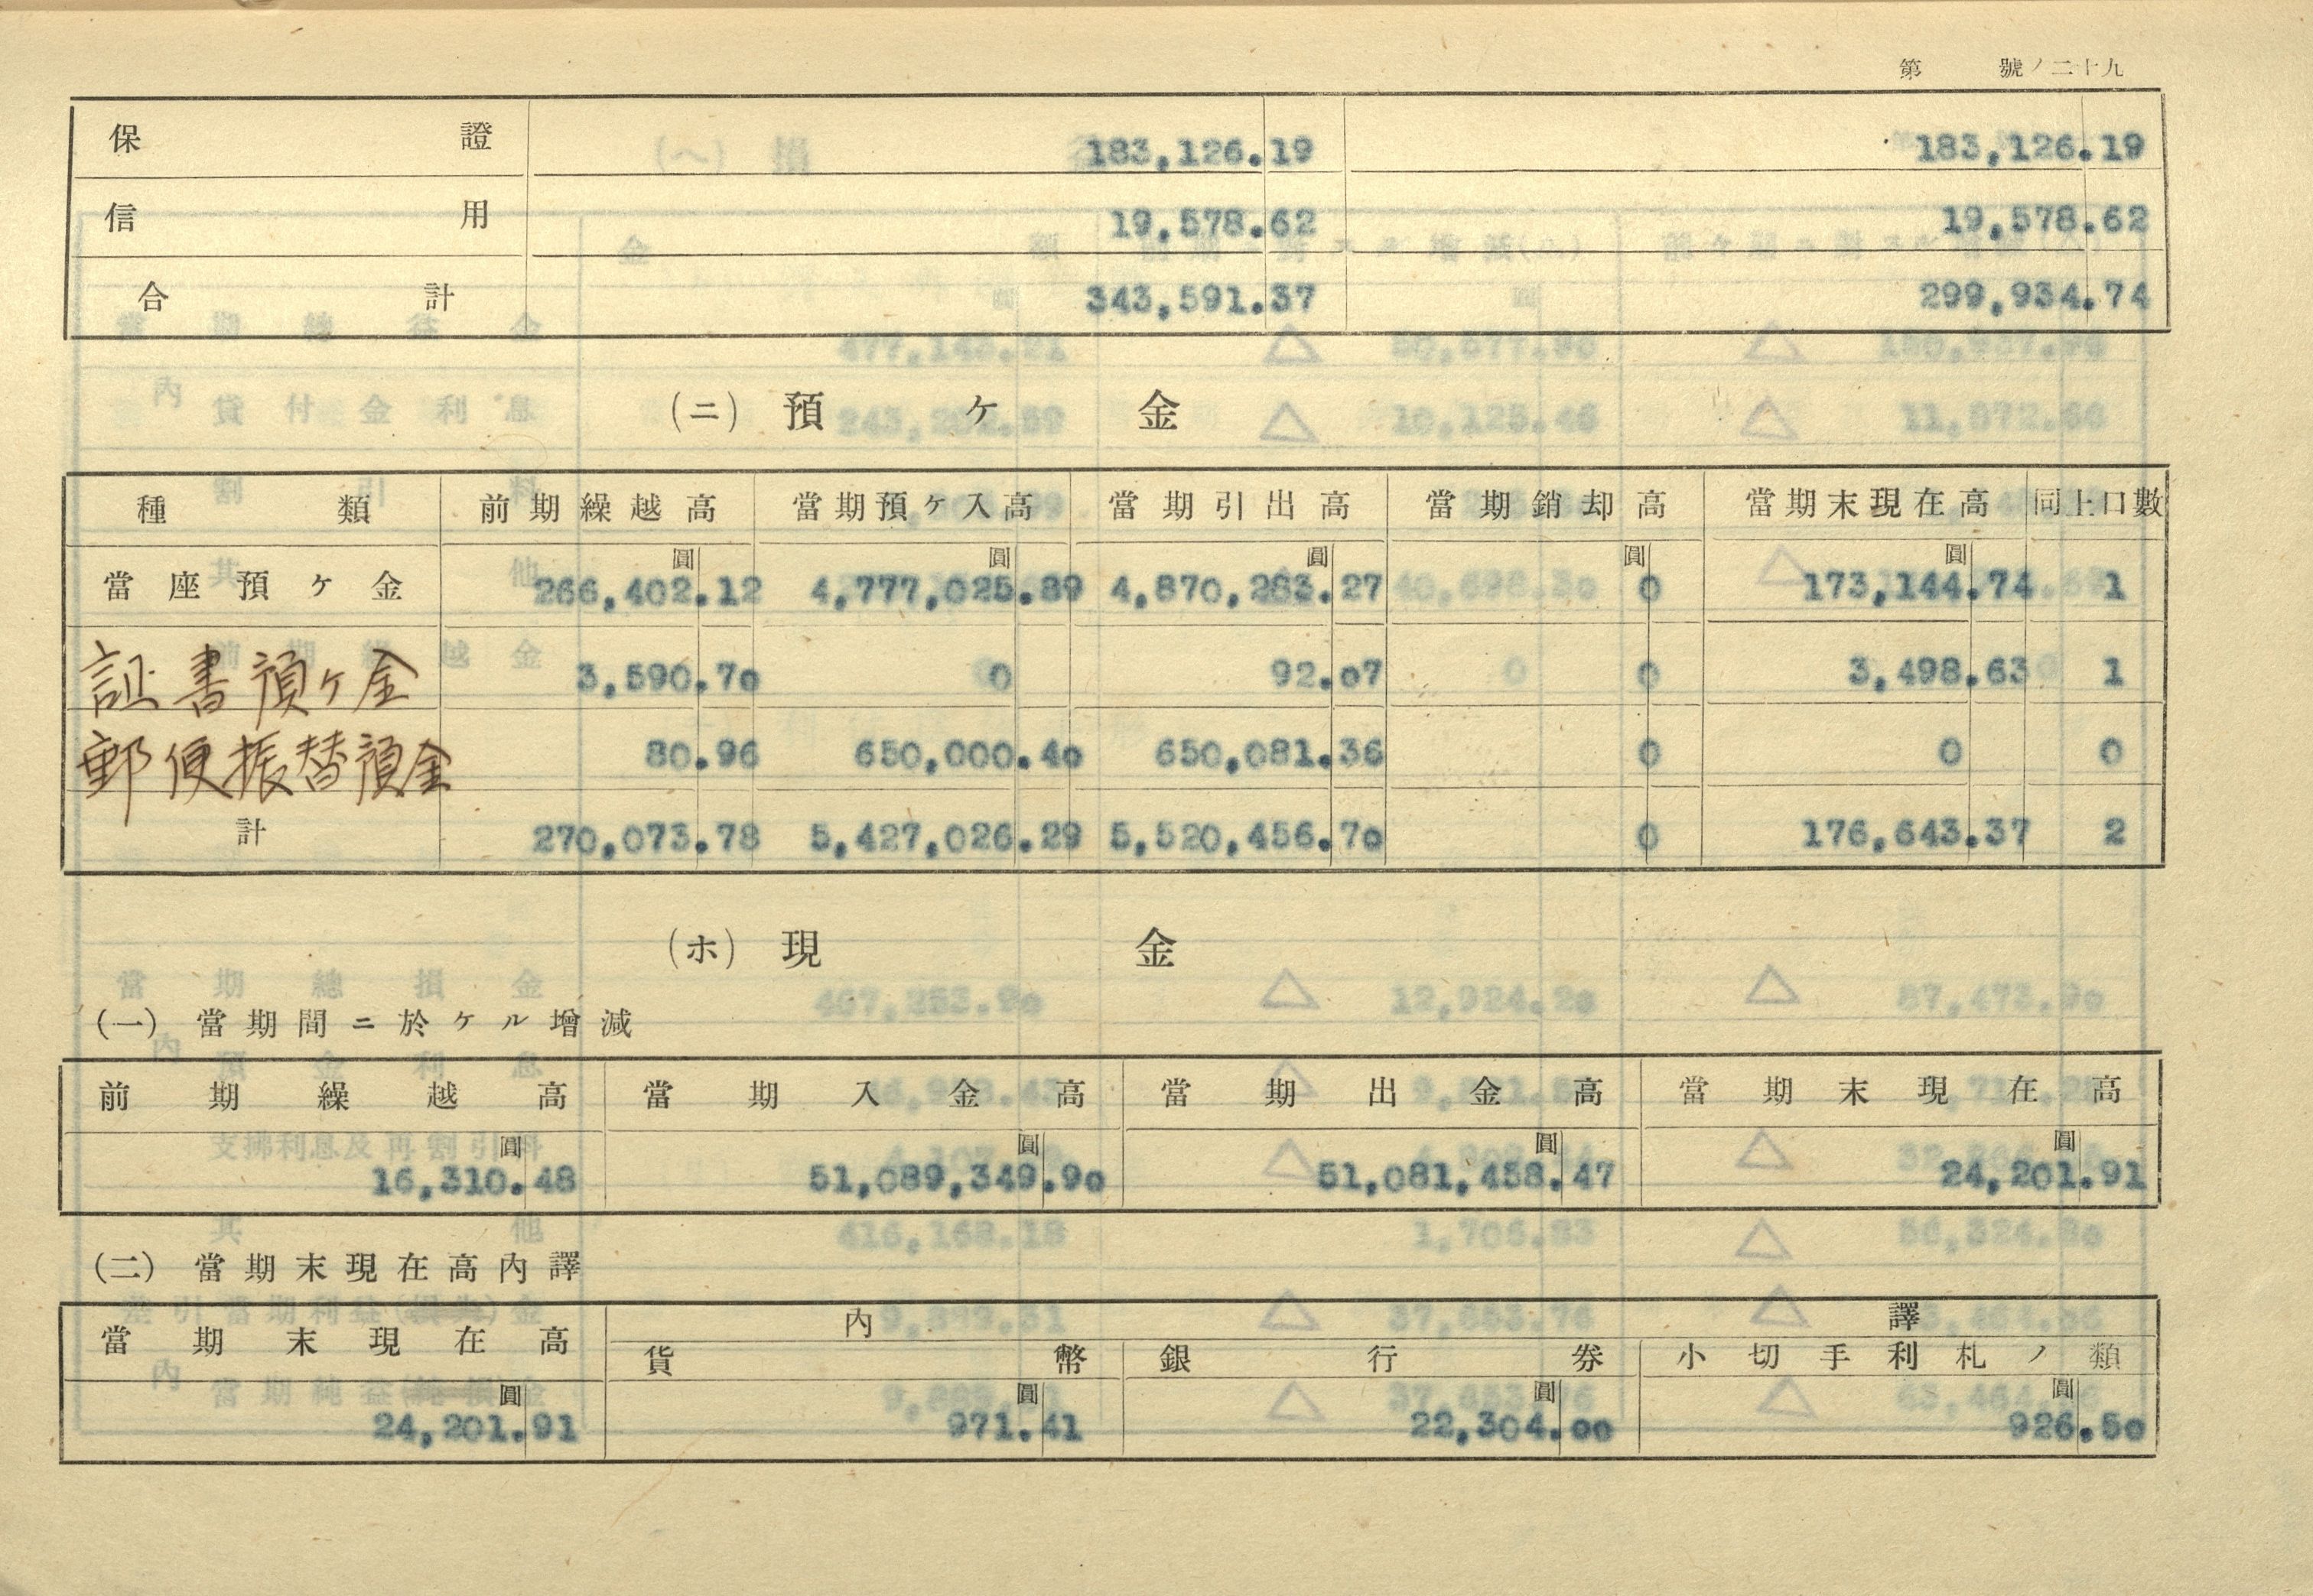 第 號ノ二十九
保證 183,126.19 183,126.19
信用 19,578.62 19,578.62
合計 343,591.37 299,934.74
(ニ) 預ケ金
種類 前期繰越高 當期預ケ入高 當期引出高 當期銷却高 當期末現在高 同上口數
圓 圓 圓 圓 圓
當座預ケ金 266,402.12 4,777,025.89 4,870,283.27 0 173,144.74 1
証書預ケ金 3,590.70 0 92.07 0 3,498.63 1
郵便振替預金 80.96 650,000.40 650,081.36 0 0 0
計 270,073.78 5,427,026.29 5,520,456.70 0 176,643.37 2
(ホ) 現金
(一) 當期間ニ於ケル增減
前期繰越高 當期入金高 當期出金高 當期末現在高
圓 圓 圓 圓
16,310.48 51,089,349.90 51,081,458.47 24,201.91
(二) 當期末現在高內譯
當期末現在高 內譯
貨幣 銀行券 小切手利札ノ類
圓 圓 圓 圓
24,201.91 971.41 22,304.00 926.50